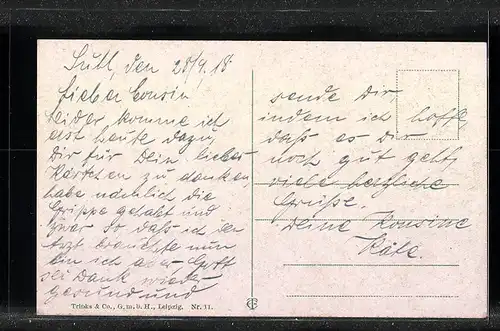 Suhl, den 28/9.18
Lieber Cousin
Leider komme ich
erst heute dazu
Dir für Dein liebes
Kärtchen zu danken,
habe nähmlich die
Grippe gehabt und
zwar so daß ich den
Arzt brauchte nun
bin ich aber Gott
sei Dank wieder
gesund und
sende Dir,
indem ich hoffe,
daß es Dir
noch gut geht,
viele herzliche
Grüße.
Deine Kousine
Käte.
Trinks & Co., G. m. b. H., Leipzig. Nr. 11.